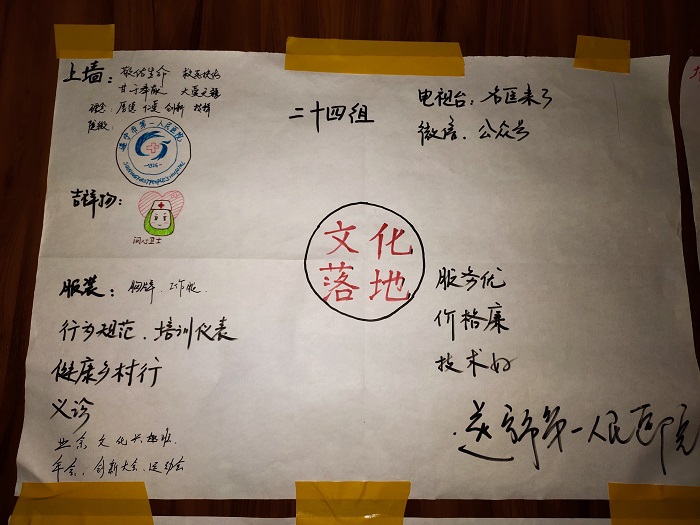 上墙：敬佑生命 救死扶伤
甘于奉献 大爱无疆
理念：厚德 仁爱 创新
院徽：
遂宁市第一人民医院
1914
吉祥物：
同心卫士
服装：胸牌、工作服
行为规范、培训仪表
健康乡村行
义诊
业余文化兴趣班
年会、创新大会、运动会
二十四组
文化
落地
电视台：名医来了
微信、公众号
服务优
价格廉
技术好
遂宁市第一人民医院